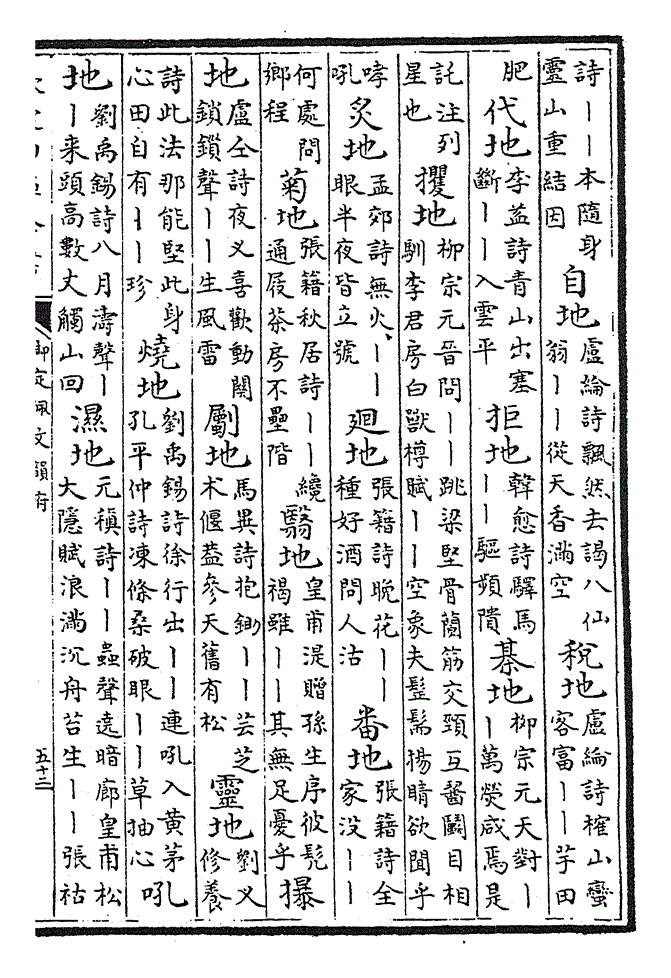 詩——本隨身靈山重結因 自地 盧綸詩飄然去謁八仙翁——從天香滿空 稅地 盧綸詩榷山蠻客富——芋田
肥 代地 李益詩青山出塞斷——入雲平 拒地 韓愈詩驛馬——驅頻隤 棊地 柳宗元天對——萬熒咸焉是
託注列星也 攫地 柳宗元晉問——跳梁堅骨蘭筋交頸互齧鬭目相馴李君房白獸樽賦——空象夫髬髵揚睛欲聞乎
哮吼 炙地 孟郊詩無火——眼半夜皆立號 廻地 張籍詩晚花——種好酒問人沽 番地 張籍詩全家没——
何處問鄉程 菊地 張籍秋居詩——纔通屐茶房不壘階 翳地 皇甫湜贈孫生序彼髡褐雖——其無足憂乎 㩧
地 盧仝詩夜叉喜歡動關鎖鎖聲——生風雷 斸地 馬異詩抱鋤——芸芝朮偃葢參天舊有松 靈地 劉叉修養
詩此法那能堅此身心田自有——珍 燒地 劉禹錫詩徐行出——連吼入黄茅孔平仲詩凍條桑破眼——草抽心 吼
地 劉禹錫詩八月濤聲——来頭高數丈觸山回 濕地 元稹詩——蟲聲遶暗廊皇甫松大隱賦浪滿沉舟苔生——張祜
御定佩文韻府
五十三